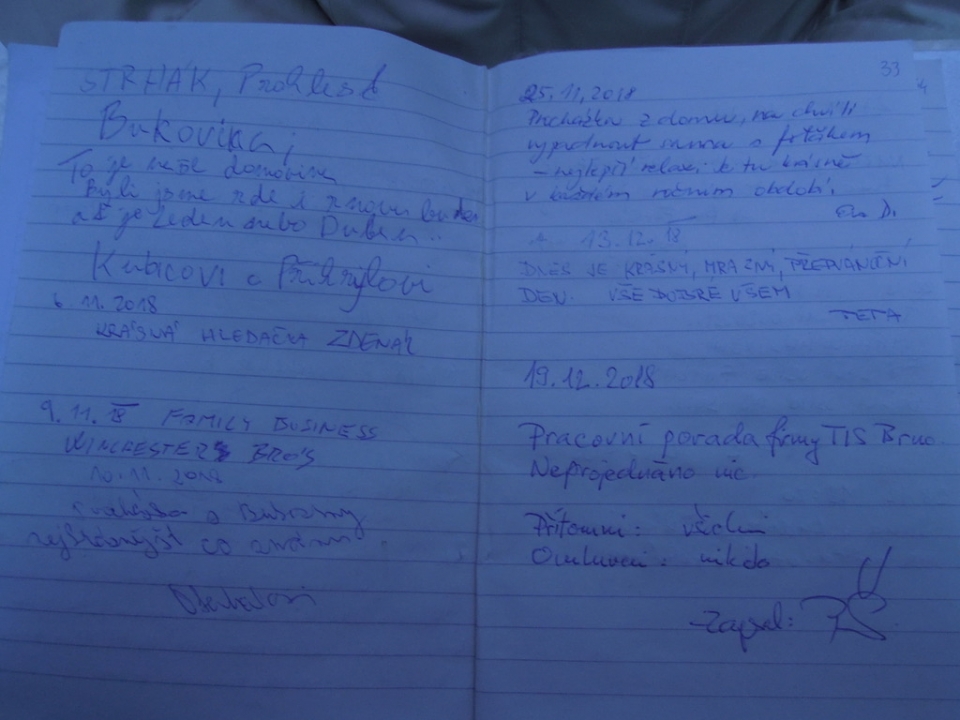 STRHÁK,
Bukovina,
To je naše domovina
Byli jsme zde i znovu budem
ať je Leden nebo Duben..
Kubicovi a Přikrylovi
6.11.2018
KRÁSNÁ HLEDAČKA ZDENA
9.11.18 FAMILY BUSINESS
WINCHESTERS BRO'S
10.11.2018
33
25.11.2018
Procházka z domu, na chvíli
vypadnout sama s
– nejlepší relax. Je tu krásně
v každém ročním období.
D.
13.12.18
DNES JE KRÁSNÝ, MRAZNÝ, PŘEDVÁNOČNÍ
DEN. VŠE DOBRÉ VŠEM
TETA
19.12.2018
Pracovní porada firmy TIS Brno.
Neprojednáno nic.
Přítomni: všichni
Omluveni: nikdo
Zapsal: